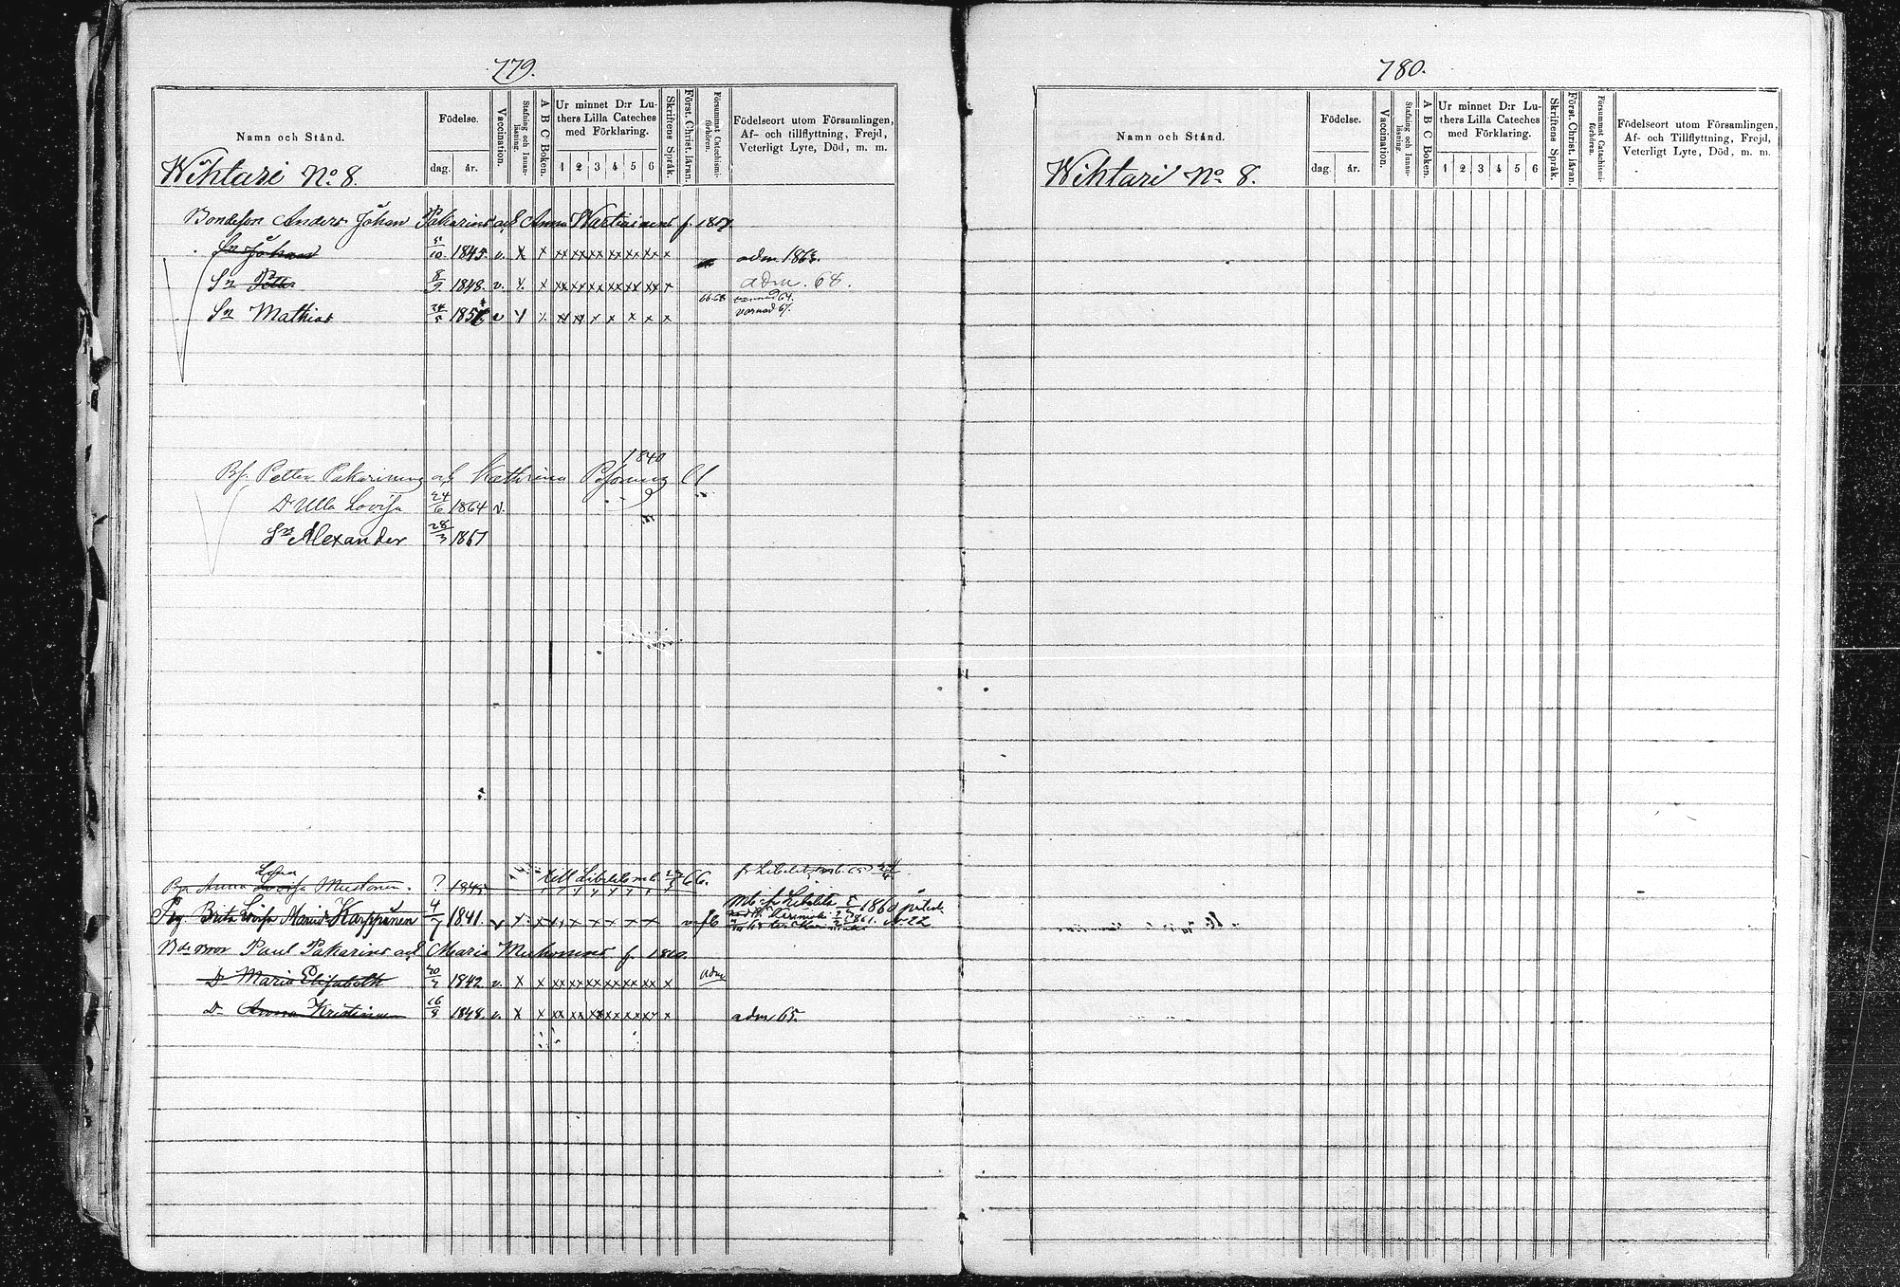 779.
Namn och Stånd.
Födelse.
dag. år.
Vaccination.
Stafning och Innanläsning.
A B C Boken.
Ur minnet D:r Luthers Lilla Cateches med Förklaring.
1 2 3 4 5 6
Skriftens Språk.
Först. Christ. läran.
Försummat Catechismiförhören.
Födelseort utom Församlingen, Af- och tillflyttning, Frejd, Veterligt Lyte, Död, m. m.
Wihtari No 8.
Bondeson Anders Johan Pakarines och Anna Wartiainens f. 1807.
Sn Johan 10. 1845. v. x x xx xx xx xx xx xx x adm. 1863.
Sn Petter 8/9 1848. v. x. x xx xx xx xx xx xx x adm. 68.
66-68 varnad 64.
Sn Mathias 24/5 185 v x x xx xx x x x x x varnad 67.
1840
Bf. Petter Pakarinens och Kathrina
D Ulla Lovisa 24/6 1864 v.
Sn Alexander 28/3 1867
Lena
Anna Mustonen. ? 1845 till Libelits 66.
Pig. Brita Lovisa Maria Karppinen 4/7 1841. v x. x x x x x x x 1860
1861. N. 22
Paul Pakarines och Maria f. 1810.
D Maria Elisabeth 20/7 1842 v. x x xx xx xx xx xx xx x adm
D Anna Kristina 16/8 1848. v. x x xx xx xx xx xx xx x adm 65.
780.
Namn och Stånd.
Födelse.
dag. år.
Vaccination.
Stafning och Innanläsning.
A B C Boken.
Ur minnet D:r Luthers Lilla Cateches med Förklaring.
1 2 3 4 5 6
Skriftens Språk.
Först. Christ. läran.
Försummat Catechismiförhören.
Födelseort utom Församlingen, Af- och Tillflyttning, Frejd, Veterligt Lyte, Död, m. m.
Wihtari No 8.